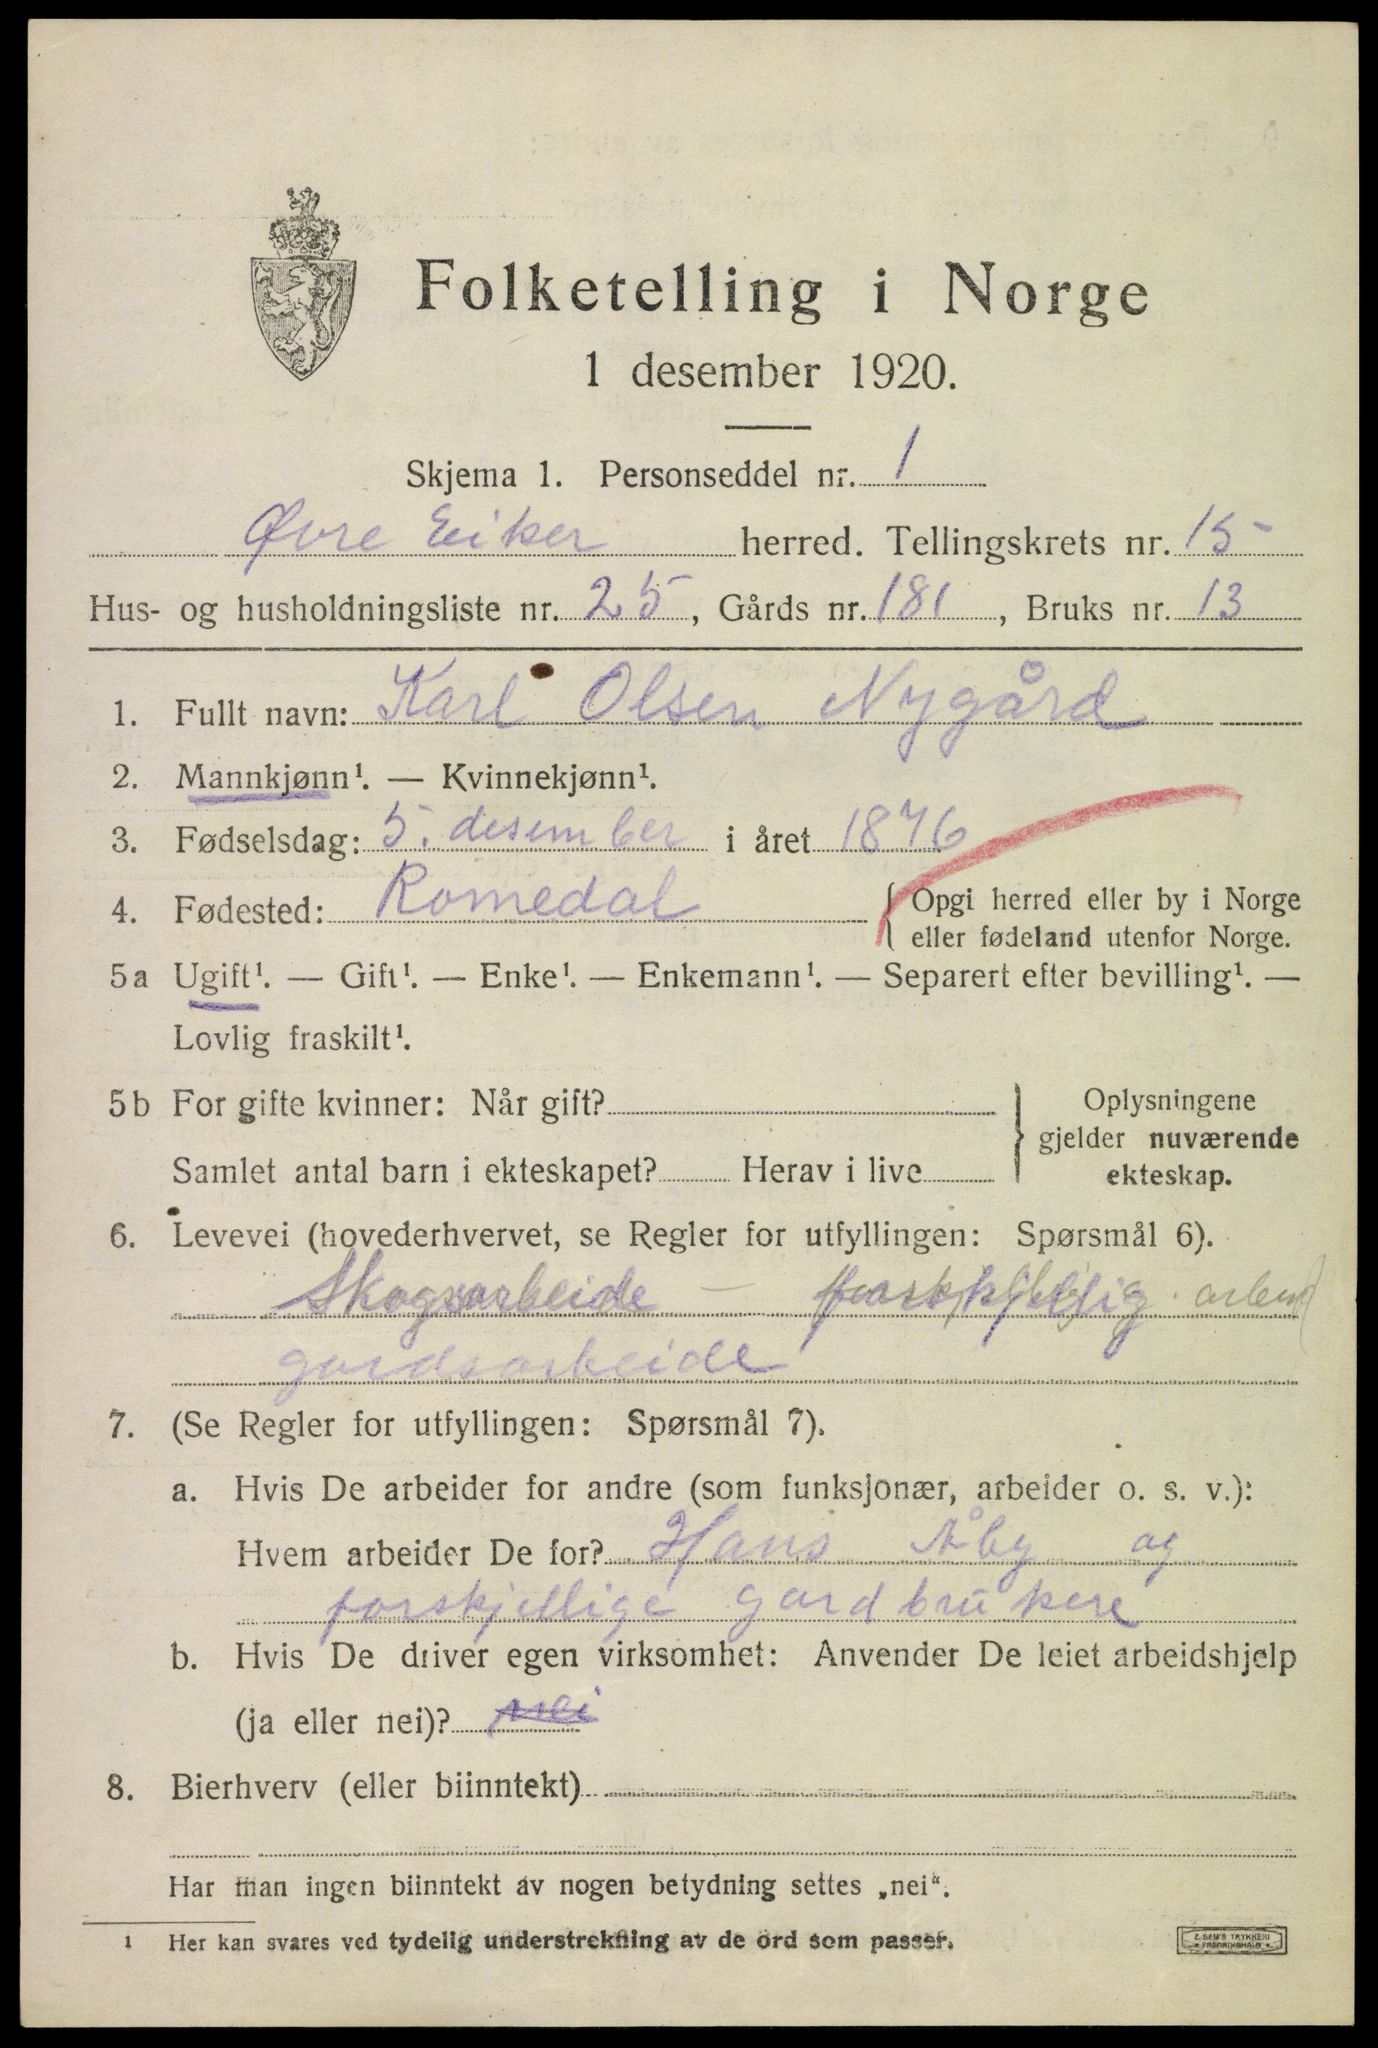 Folketelling i Norge
1 desember 1920.
Skjema 1. Personseddel nr. 1
Øvre Eiker herred. Tellingskrets nr. 15
Hus- og husholdningsliste nr. 25, Gårds nr. 181, Bruks nr. 13
1. Fullt navn: Karl Olsen Nygård
2. Mannkjønn¹. — Kvinnekjønn¹.
3. Fødselsdag: 5. desember i året 1876
4. Fødested: Romedal { Opgi herred eller by i Norge
eller fødeland utenfor Norge.
5a Ugift¹. — Gift¹. — Enke¹. — Enkemann¹. — Separert efter bevilling¹. —
Lovlig fraskilt¹.
5b For gifte kvinner: Når gift? } Oplysningene
gjelder nuværende
Samlet antal barn i ekteskapet? Herav i live ekteskap.
6. Levevei (hovederhvervet, se Regler for utfyllingen: Spørsmål 6).
Skogsarbeide – forskjellig arbeid
gardsarbeide
7. (Se Regler for utfyllingen: Spørsmål 7).
a. Hvis De arbeider for andre (som funksjonær, arbeider o. s. v.):
Hvem arbeider De for? Hans Åby og
forskjellige gardbrukere
b. Hvis De driver egen virksomhet: Anvender De leiet arbeidshjelp
(ja eller nei)? nei
8. Bierhverv (eller biinntekt)
Har man ingen biinntekt av nogen betydning settes „nei“.
¹ Her kan svares ved tydelig understrekning av de ord som passer.
E. SEM'S TRYKKERI
FREDRIKSHALD